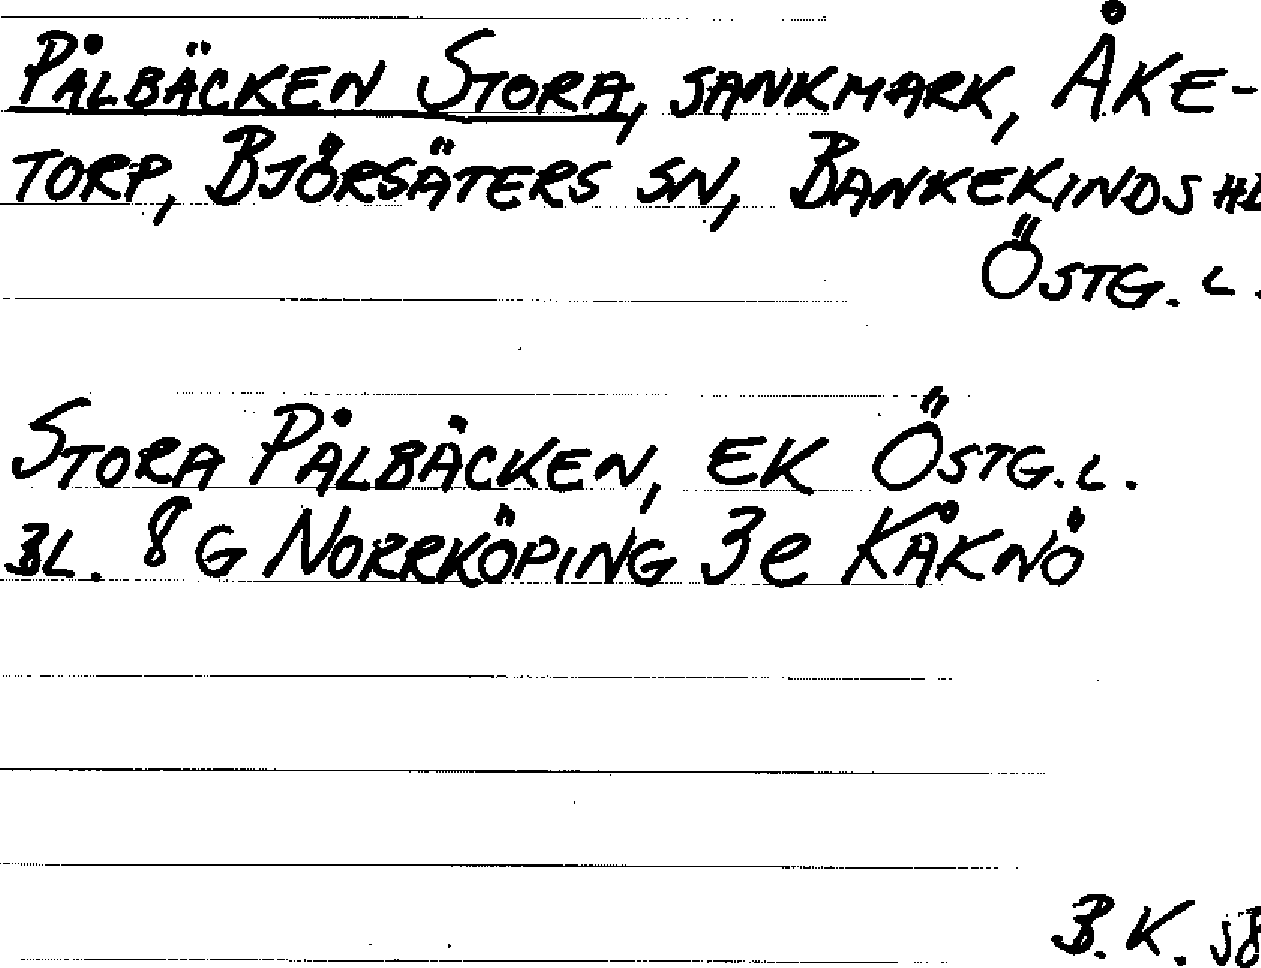 PÅLBÄCKEN STORA, SANKMARK, ÅKE-
TORP, BJÖRSÄTERS SN, BANKEKINDS HD
ÖSTG. L.
STORA PÅLBÄCKEN, EK ÖSTG. L.
BL. 8 G NORRKÖPING 3e KÅKNÖ
B. K. 58